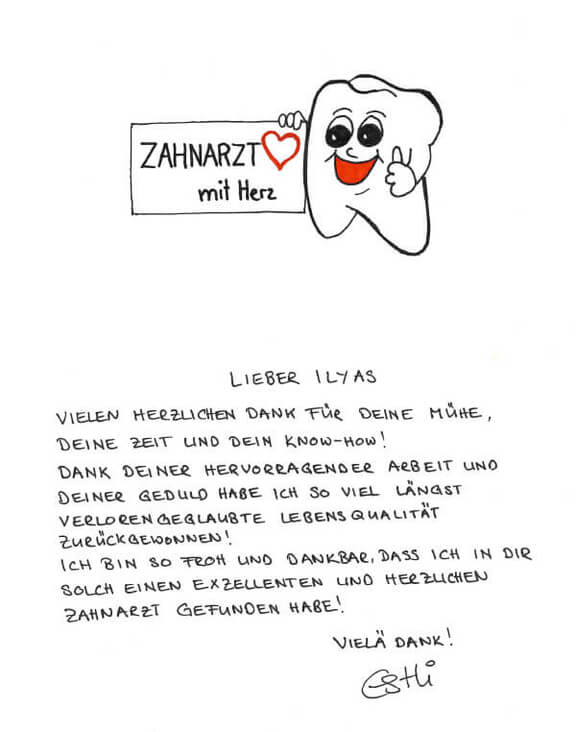 ZAHNARZT
mit Herz
LIEBER ILYAS
VIELEN HERZLICHEN DANK FÜR DEINE MÜHE,
DEINE ZEIT UND DEIN KNOW-HOW!
DANK DEINER HERVORRAGENDER ARBEIT UND
DEINER GEDULD HABE ICH SO VIEL LÄNGST
VERLORENGEGLAUBTE LEBENSQUALITÄT
ZURÜCKGEWONNEN!
ICH BIN SO FROH UND DANKBAR, DASS ICH IN DIR
SOLCH EINEN EXZELLENTEN UND HERZLICHEN
ZAHNARZT GEFUNDEN HABE!
VIELÄ DANK!
Esthi